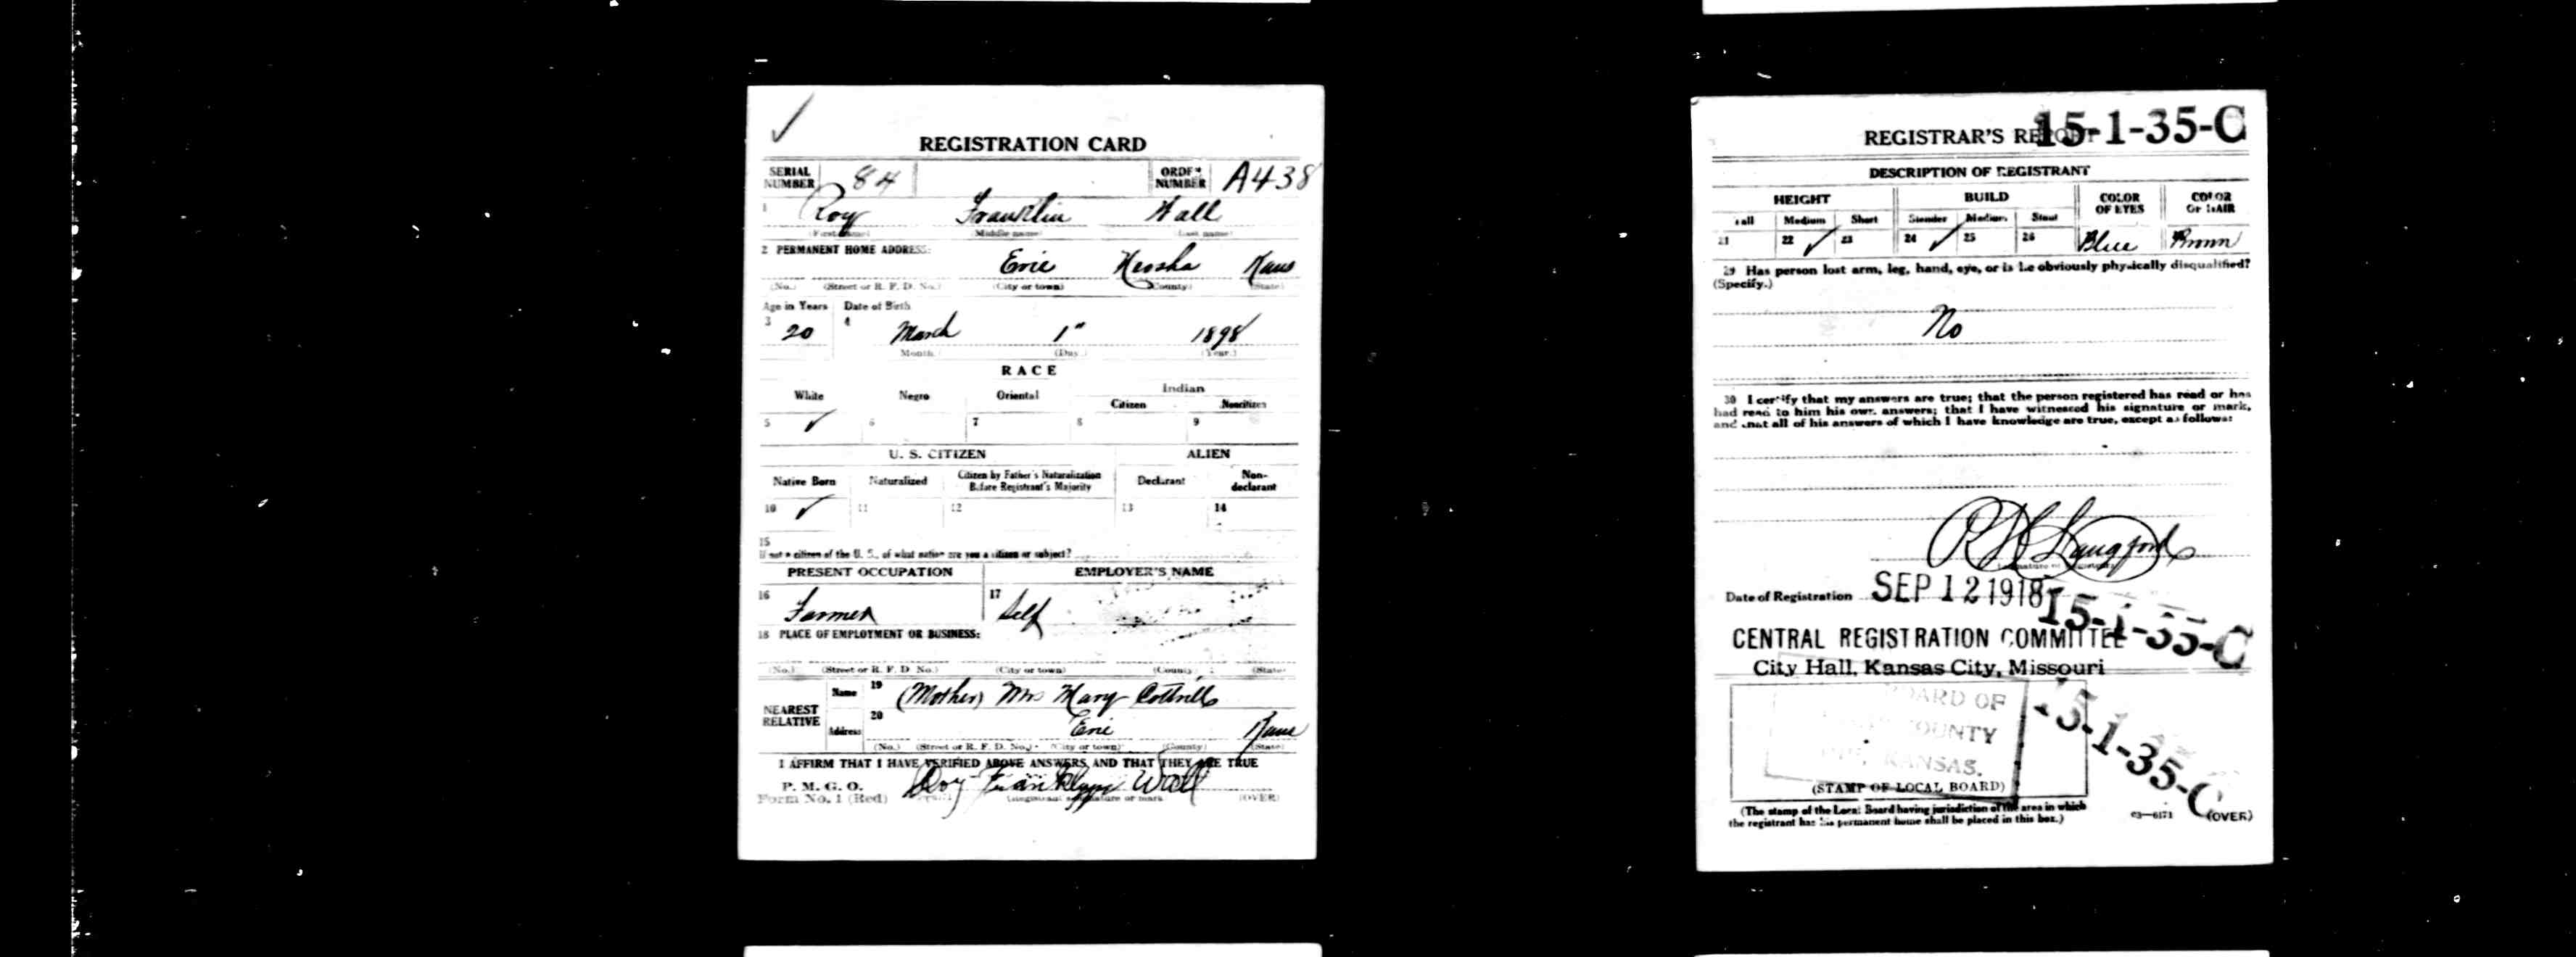 REGISTRATION CARD
SERIAL NUMBER 84 ORDER NUMBER A438
1 Roy Franklin Wall
(First name) (Middle name) (Last name)
2 PERMANENT HOME ADDRESS:
Erie Neosho Kans
(No.) (Street or R. F. D. No.) (City or town) (County) (State)
Age in Years Date of Birth
3 20 4 March 1" 1898
(Month.) (Day.) (Year.)
RACE
White Negro Oriental Indian
Citizen Noncitizen
5 ✓ 6 7 8 9
U. S. CITIZEN ALIEN
Native Born Naturalized Citizen by Father's Naturalization Before Registrant's Majority Declarant Non-declarant
10 ✓ 11 12 13 14
15
If not a citizen of the U. S., of what nation are you a citizen or subject?
PRESENT OCCUPATION EMPLOYER'S NAME
16 Farmer 17 Self
18 PLACE OF EMPLOYMENT OR BUSINESS:
(No.) (Street or R. F. D. No.) (City or town) (County) (State)
NEAREST RELATIVE Name 19 (Mother) Mrs Mary
Address 20 Erie Kans
(No.) (Street or R. F. D. No.) (City or town) (County) (State)
I AFFIRM THAT I HAVE VERIFIED ABOVE ANSWERS AND THAT THEY ARE TRUE
P. M. G. O.
Form No. 1 (Red) Roy Wall
(Registrant's signature or mark) (OVER)
REGISTRAR'S REPORT 15-1-35-C
DESCRIPTION OF REGISTRANT
HEIGHT BUILD COLOR OF EYES COLOR OF HAIR
Tall Medium Short Slender Medium Stout
21 22 ✓ 23 24 ✓ 25 26 Blue Brown
29 Has person lost arm, leg, hand, eye, or is he obviously physically disqualified?
(Specify.)
No
30 I certify that my answers are true; that the person registered has read or has
had read to him his own answers; that I have witnessed his signature or mark,
and that all of his answers of which I have knowledge are true, except as follows:
Langford
Date of Registration SEP 12 1918
15-1-35-C
CENTRAL REGISTRATION COMMITTEE
City Hall, Kansas City, Missouri
BOARD OF
COUNTY
KANSAS.
15-1-35-C
(STAMP OF LOCAL BOARD)
(The stamp of the Local Board having jurisdiction of the area in which
the registrant has his permanent home shall be placed in this box.)
03—6171 (OVER)